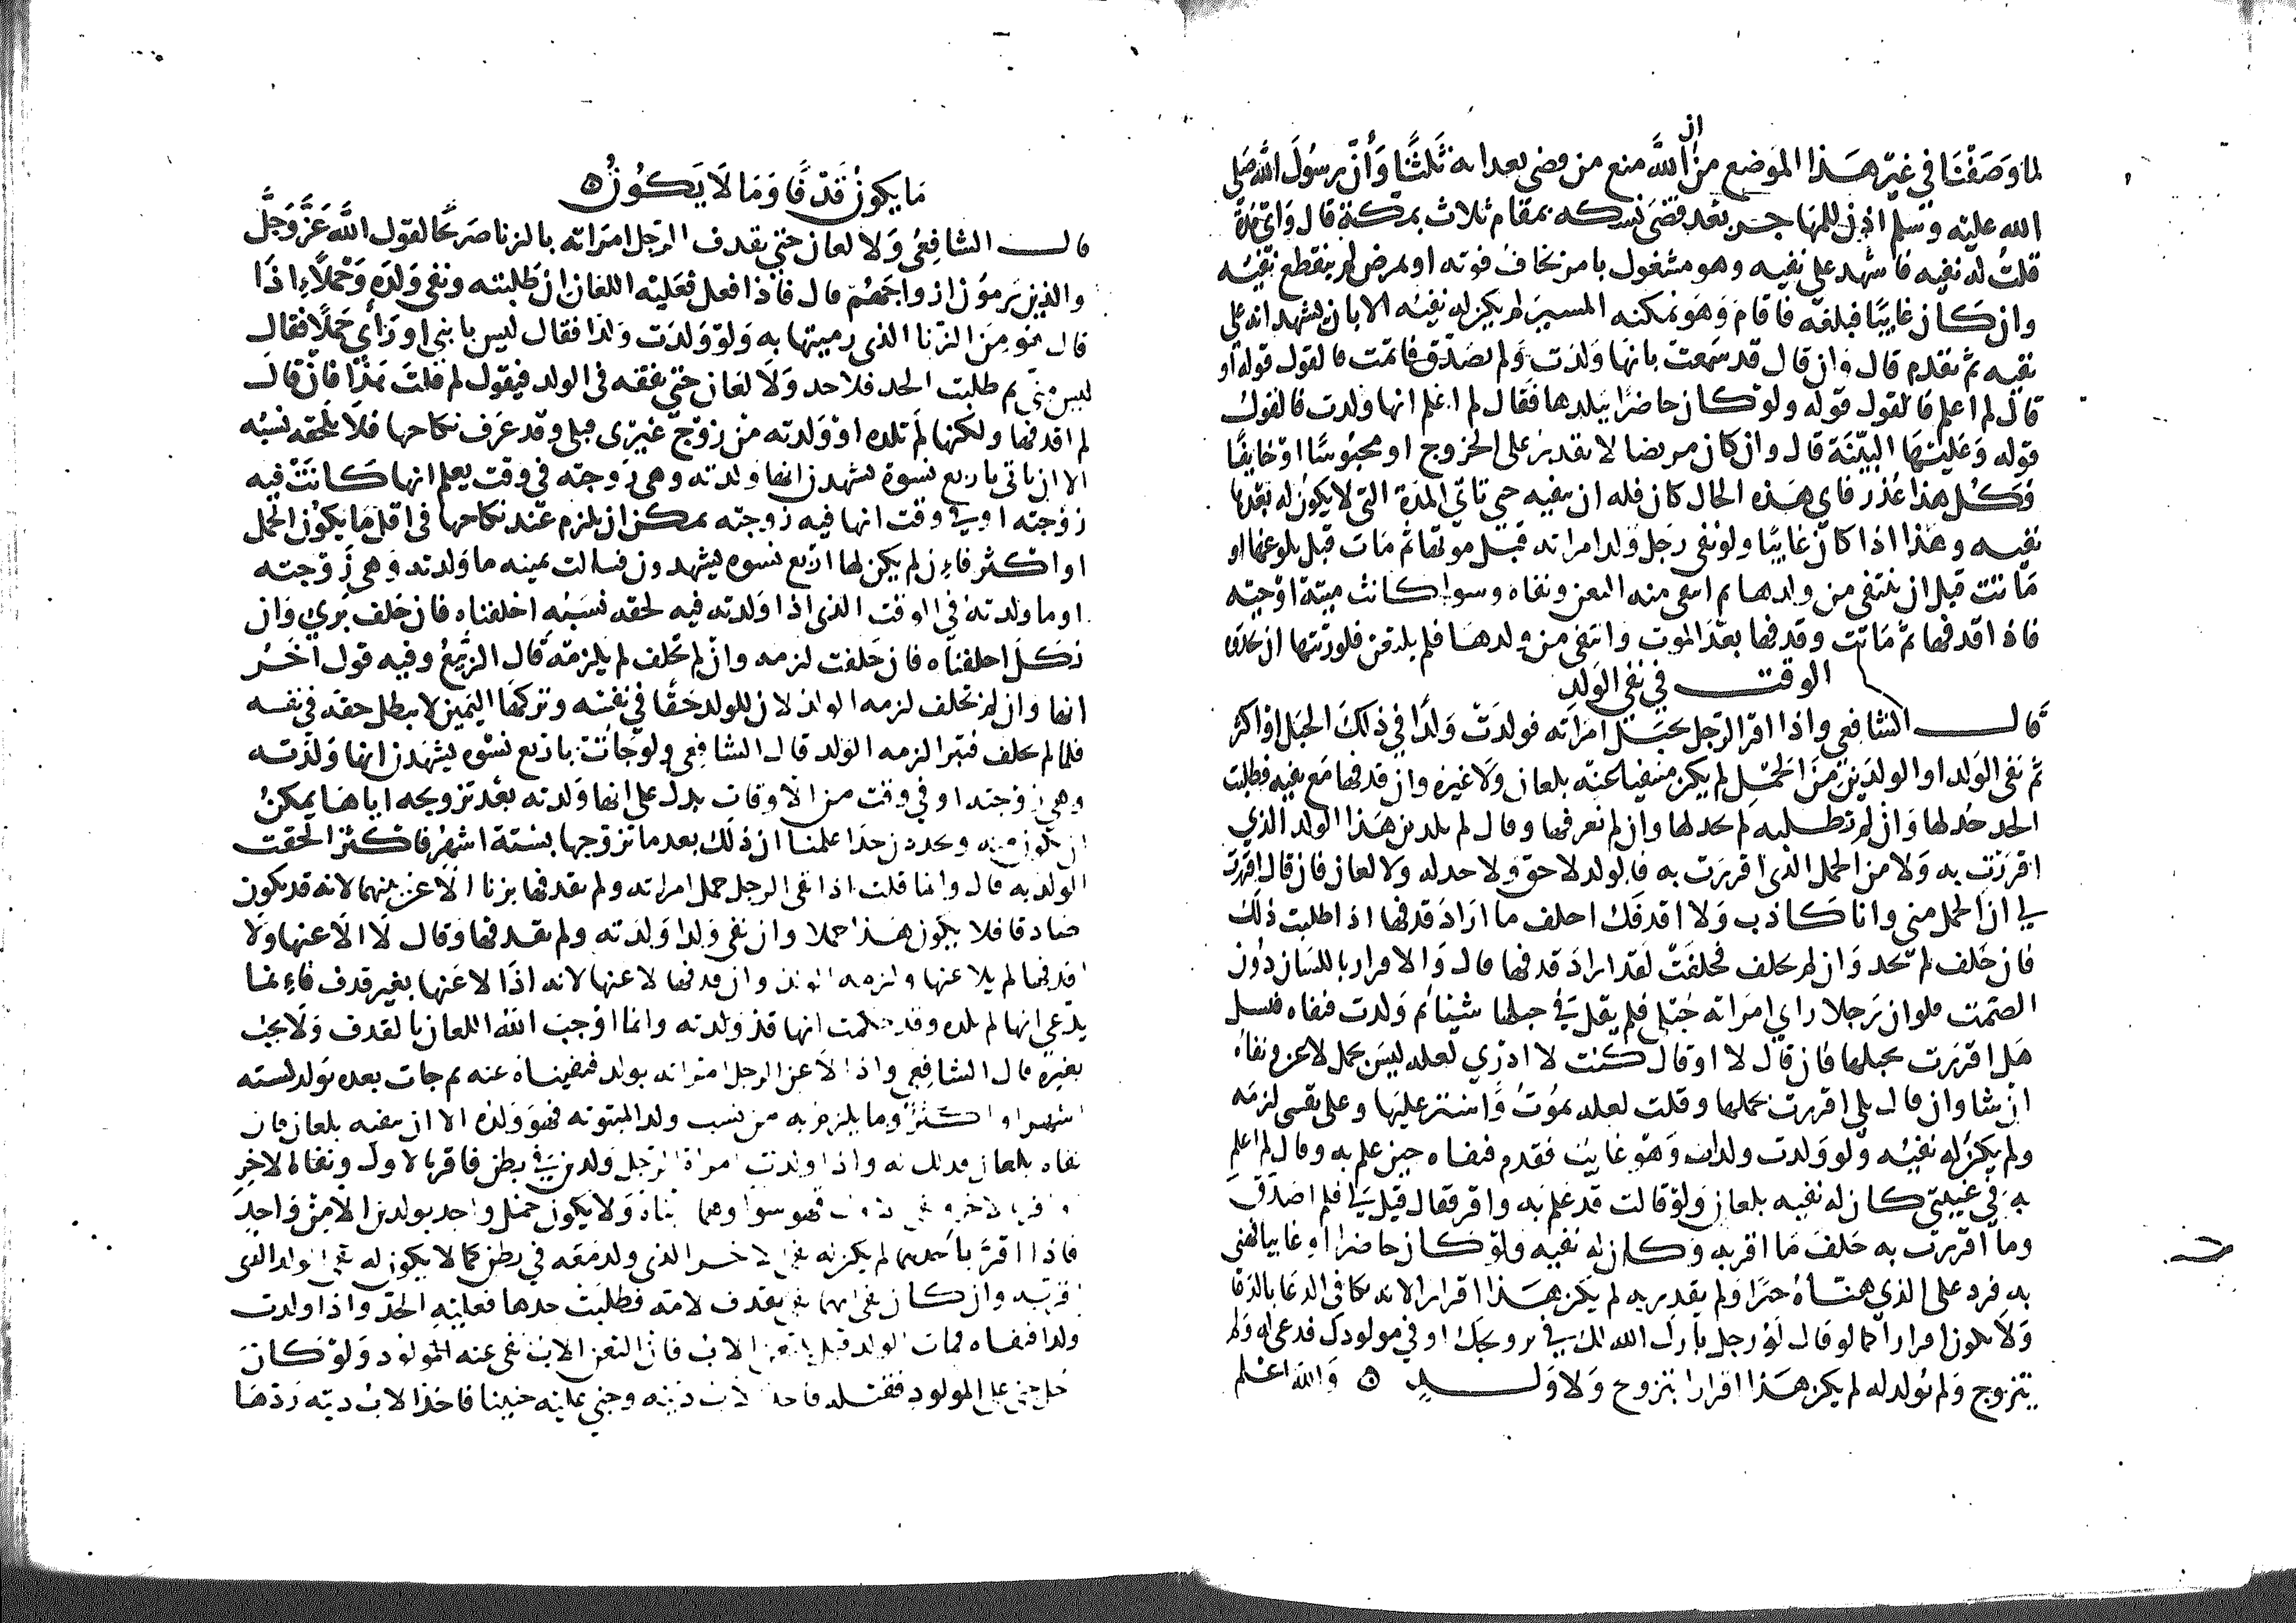 ان
لما وصفنا في غير هذا الموضع من الله منع من قضى بعدابه ثلثا وأن رسول الله صلى
الله عليه وسلم اذن للمهاجر بعد قضى نسكه بمقام ثلاث بمكة قال واي مدة
قلت له نفيه فاشهد على نفيه وهو مشغول بامر يخاف فوته او بمرض لم ينقطع نفيه
وان كان غايبا فبلغه فاقام وهو يمكنه المسير لم يكن له نفيه الا بان يشهد انه على
نفيه ثم يقدم قال وان قال قد سمعت بانها ولدت ولم اصدق فاقمت فالقول قوله او
قال لم اعلم فالقول قوله ولو كان حاضرا ببلدها فقال لم اعلم انها ولدت فالقول
قوله وعليها البينة قال وان كان مريضا لا يقدر على الخروج او محبوسا او خايفا
فكل هذا عذر فاي هذه الحال كان فله ان ينفيه حتى تاتي المدة التي لا يكون له بعدها
نفيه وهذا اذا كان غايبا ولو نفى رجل ولد امراته قبل موتها ثم مات قبل بلوغها او
ماتت قبل ان ينتفي من ولدها ثم انتفى منه التعن ونفاه وسوا كانت ميتة او حية
فاذا قدفها ثم ماتت وقدفها بعد الموت وانتفى من ولدها فلم يلتعن فلورثتها ان
الوقت في نفي الولد
قال الشافعي واذا اقر الرجل بحبل امراته فولدت ولدا في ذلك الحبل او اكثر
ثم نفى الولد او الولدين من الحمل لم يكن منفيا عنه بلعان ولا غيره وان قدفها مع نفيه فطلبت
الحد حد لها وان لم تطلبه لم يحد لها وان لم يقدفها وقال لم تلدين هذا الولد الذي
اقررت به ولا من الحمل الذي اقررت به فالولد لاحق ولا حد له ولا لعان فان قال اقررت
ان الحمل مني وانا كاذب ولا اقدفك احلف ما اراد قدفها اذا طلبت ذلك
فان حلف لم يحد وان لم يحلف فحلفت لقد اراد قدفها قال والاقرار باللسان دون
الصمت فلو ان رجلا راي امراته حبلى فلم يقل في حبلها شيئا ثم ولدت فنفاه فسل
هل اقررت بحبلها فان قال لا او قال كنت لا ادري لعله ليس بحمل لاعن ونفاه
ان شا وان قال بلى اقررت بحملها وقلت لعله يموت واستر عليها وعلى نفسي لزمه
ولم يكن له نفيه ولو ولدت ولدا وهو غايب فقدم فنفاه حين علم به وقال لم اعلم
به في غيبتي كان له نفيه بلعان ولو قالت قد علم به واقر فقال قيل لي فلم اصدق
وما اقررت به حلف ما اقر به وكان له نفيه ولو كان حاضرا او غايبا فهني
به فرد على الذي هناه خيرا ولم يقر به لم يكن هذا اقرارا لانه يكافي الدعا بالدعا
ولا يكون اقرارا كما لو قال له رجل بارك الله لك في تزويجك او في مولودك فدعى له ولم
يتزوج ولم يولد له لم يكن هذا اقرارا بتزوج ولا ولد ۞ والله اعلم
ما يكون قدفا وما لا يكون ۞
قال الشافعي ولا لعان حتى يقدف الرجل امراته بالزنا صريحا لقول الله عز وجل
والذين يرمون ازواجهم قال فاذا فعل فعليه اللعان ان طلبته ونفى ولده وحمله اذا
قال هو من الزنا الذي رميتها به ولو ولدت ولدا فقال ليس بابني او راى حملا فقال
ليس مني ثم طلبت الحد فلا حد ولا لعان حتى يقفه في الولد فيقول لم قلت هذا فان قال
لم اقدفها ولكنها لم تلده او ولدته من زوج غيري قبلي وقد عرف نكاحها فلا يلحقه نسبه
الا ان ياتي باربع نسوة يشهدن انها ولدته وهي زوجته في وقت يعلم انها كانت فيه
زوجته او في وقت انها فيه زوجته يمكن ان يلزم عند نكاحها في اقل ما يكون الحمل
او اكثر فاءن لم يكن لها اربع نسوه يشهدون فسالت يمينه ما ولدته وهي زوجته
او ما ولدته في الوقت الذي اذا ولدته فيه لحقه نسبه احلفناه فان حلف بري وان
نكل احلفناه فان حلفت لزمه وان لم تحلف لم يلزمه قال الربيع وفيه قول اخر
انها وان لم تحلف لزمه الولد لان للولد حقا في نفسه وتركها اليمين لا يبطل حقه في نفسه
فلما لم يحلف فيبرا لزمه الولد قال الشافعي ولو جات باربع نسوه يشهدن انها ولدته
وهي زوجته او في وقت من الاوقات يدل على انها ولدته بعد تزويجه اياها يمكن
ان يكون منه ويحددن حدا علمنا ان ذلك بعد ما تزوجها بستة اشهر فاكثر الحقت
الولد به قال وانما قلت اذا نفى الرجل حمل امراته ولم يقدفها بزنا الاعن بينهما لانه قد يكون
صادقا فلا يكون هذا حملا وان نفى ولدا ولدته ولم يقدفها وقال لا الاعنها ولا
اقدفها لم يلاعنها ولزمه الولد وان قدفها لاعنها لانه اذا لاعنها بغير قدف فاءنما
يدعي انها لم تلده وقد حكمت انها قد ولدته وانما اوجب الله اللعان بالقدف ولا يجب
بغيره قال الشافعي واذا لاعن الرجل امراته بولد فنفيناه عنه ثم جات بعده بولد لسته
اشهر او اكثر وما يلزم به من نسب ولد المبتوته فهو ولده الا ان ينفيه بلعان فان
نفاه بلعان فدلك له واذا ولدت امراة الرجل ولدين في بطن فاقر بالاول ونفى الاخر
فهو سوا وهما ابناه ولا يكون حمل واحد بولدين الا من واحد
فاذا اقر باحدهما لم يكن له نفي الاخر الذي ولد معه في بطن كما لا يكون له نفي الولد الذي
اقر به وان كان نفى بقدف لامه فطلبت حدها فعليه الحد واذا ولدت
ولدا فنفاه فمات الولد قبل يلتعن الاب فان التعن الاب نفي عنه المولود ولو كان
رجل جنى على المولود فقتله فاخذ الاب ديته وجني عليه جنينا فاخذ الاب ديته ردها